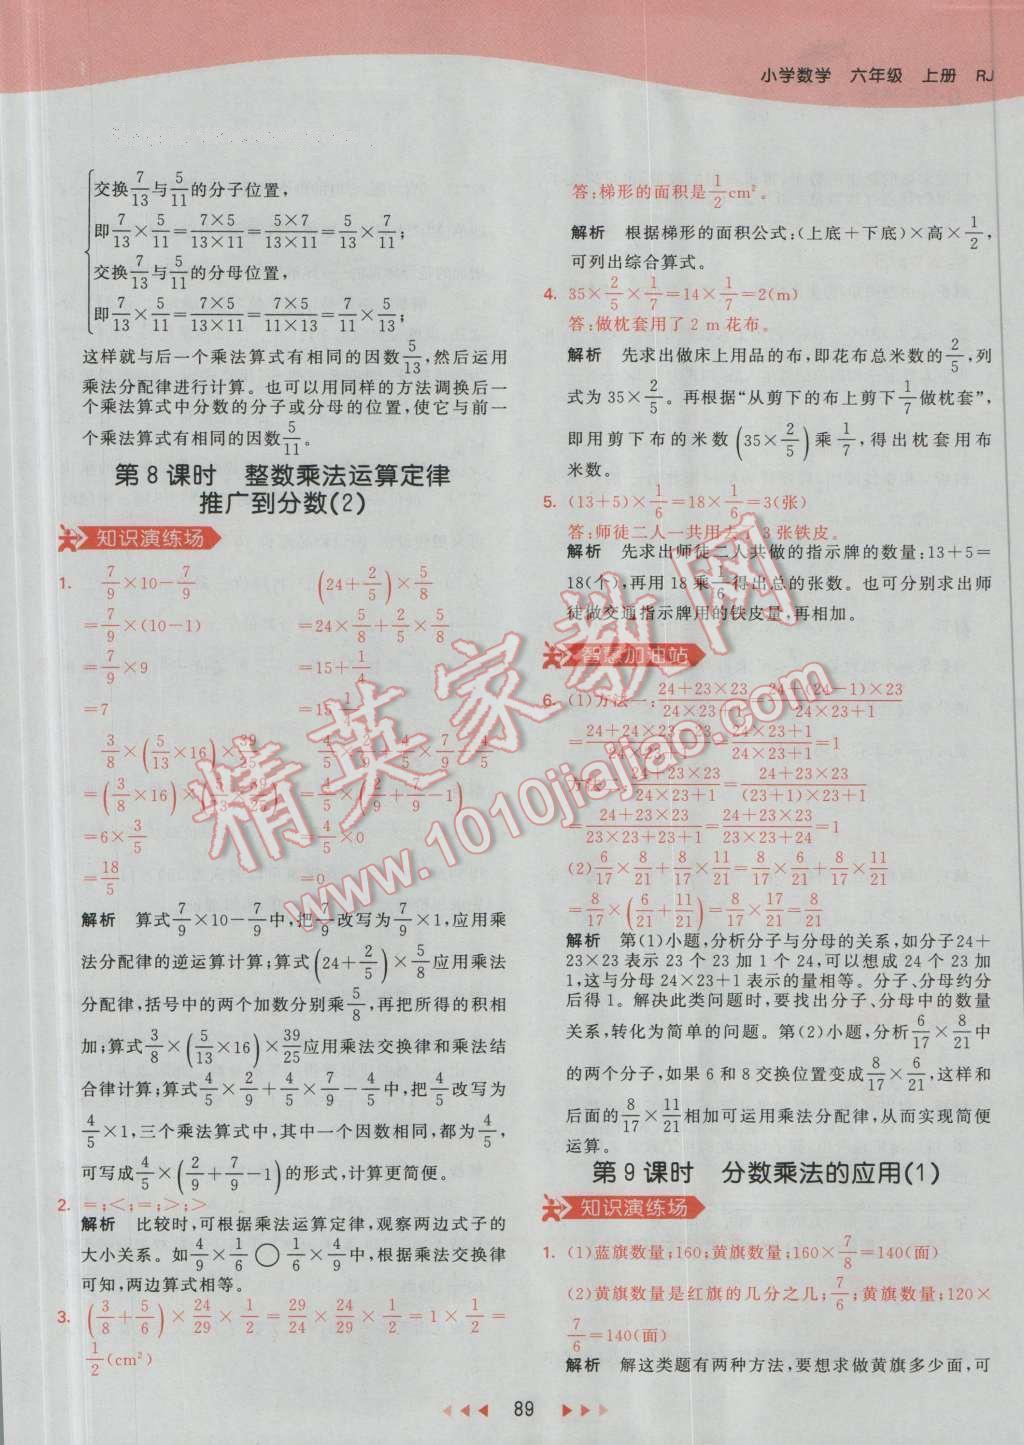 小学数学 六年级 上册 RJ
交换7/13与5/11的分子位置，
即7/13×5/11=7×5/13×11=5×7/13×11=5/13×7/11；
交换7/13与5/11的分母位置，
即7/13×5/11=7×5/13×11=7×5/11×13=7/11×5/13；
这样就与后一个乘法算式有相同的因数5/13，然后运用
乘法分配律进行计算。也可以用同样的方法调换后一
个乘法算式中分数的分子或分母的位置，使它与前一
个乘法算式有相同的因数5/11。
第8课时 整数乘法运算定律
推广到分数(2)
知识演练场
1. 7/9×10-7/9 (24+2/5)×5/8
=7/9×(10-1) =24×5/8+2/5×5/8
=7/9×9 =15+1/4
=7 =15 1/4
3/8×(5/13×16)×39/25 4/5×2/9+4/5×7/9-4/5
=(3/8×16)×(5/13×39/25) =4/5×(2/9+7/9-1)
=6×3/5 =4/5×0
=18/5 =0
解析 算式7/9×10-7/9中，把7/9改写为7/9×1，应用乘
法分配律的逆运算计算；算式(24+2/5)×5/8应用乘法
分配律，括号中的两个加数分别乘5/8，再把所得的积相
加；算式3/8×(5/13×16)×39/25应用乘法交换律和乘法结
合律计算；算式4/5×2/9+4/5×7/9-4/5中，把4/5改写为
4/5×1，三个乘法算式中，其中一个因数相同，都为4/5，
可写成4/5×(2/9+7/9-1)的形式，计算更简便。
2. =；<；=；>；>
解析 比较时，可根据乘法运算定律，观察两边式子的
大小关系。如4/9×1/6○1/6×4/9中，根据乘法交换律
可知，两边算式相等。
3. (3/8+5/6)×24/29×1/2=29/24×24/29×1/2=1×1/2=
1/2(cm²)
答：梯形的面积是1/2cm²。
解析 根据梯形的面积公式：(上底+下底)×高×1/2，
可列出综合算式。
4. 35×2/5×1/7=14×1/7=2(m)
答：做枕套用了2 m花布。
解析 先求出做床上用品的布，即花布总米数的2/5，列
式为35×2/5。再根据“从剪下的布上剪下1/7做枕套”，
即用剪下布的米数(35×2/5)乘1/7，得出枕套用布
米数。
5. (13+5)×1/6=18×1/6=3(张)
答：师徒二人一共用去 3张铁皮。
解析 先求出师徒二人共做的指示牌的数量：13+5=
18(个)，再用18乘1/6得出总的张数。也可分别求出师
徒做交通指示牌用的铁皮量，再相加。
智慧加油站
6. (1)方法一：24+23×23/24×23+1=24+(24-1)×23/24×23+1
=24+24×23-23/24×23+1=24×23+1/24×23+1=1
方法二：24+23×23/24×23+1=24+23×23/(23+1)×23+1
=24+23×23/23×23+23+1=24+23×23/23×23+24=1
(2)6/17×8/21+8/17×11/21=8/17×6/21+8/17×11/21
=8/17×(6/21+11/21)=8/17×17/21=8/21
解析 第(1)小题，分析分子与分母的关系，如分子24+
23×23表示23个23加1个24，可以想成24个23加
1，这与分母24×23+1表示的量相等。分子、分母约分
后得1。解决此类问题时，要找出分子、分母中的数量
关系，转化为简单的问题。第(2)小题，分析6/17×8/21中
的两个分子，如果6和8交换位置变成8/17×6/21，这样和
后面的8/17×11/21相加可运用乘法分配律，从而实现简便
运算。
第9课时 分数乘法的应用(1)
知识演练场
1. (1)蓝旗数量；160；黄旗数量；160×7/8=140(面)
(2)黄旗数量是红旗的几分之几；7/6；黄旗数量；120×
7/6=140(面)
解析 解这类题有两种方法，要想求做黄旗多少面，可
89
精英家教网
www.1010jiajiao.com